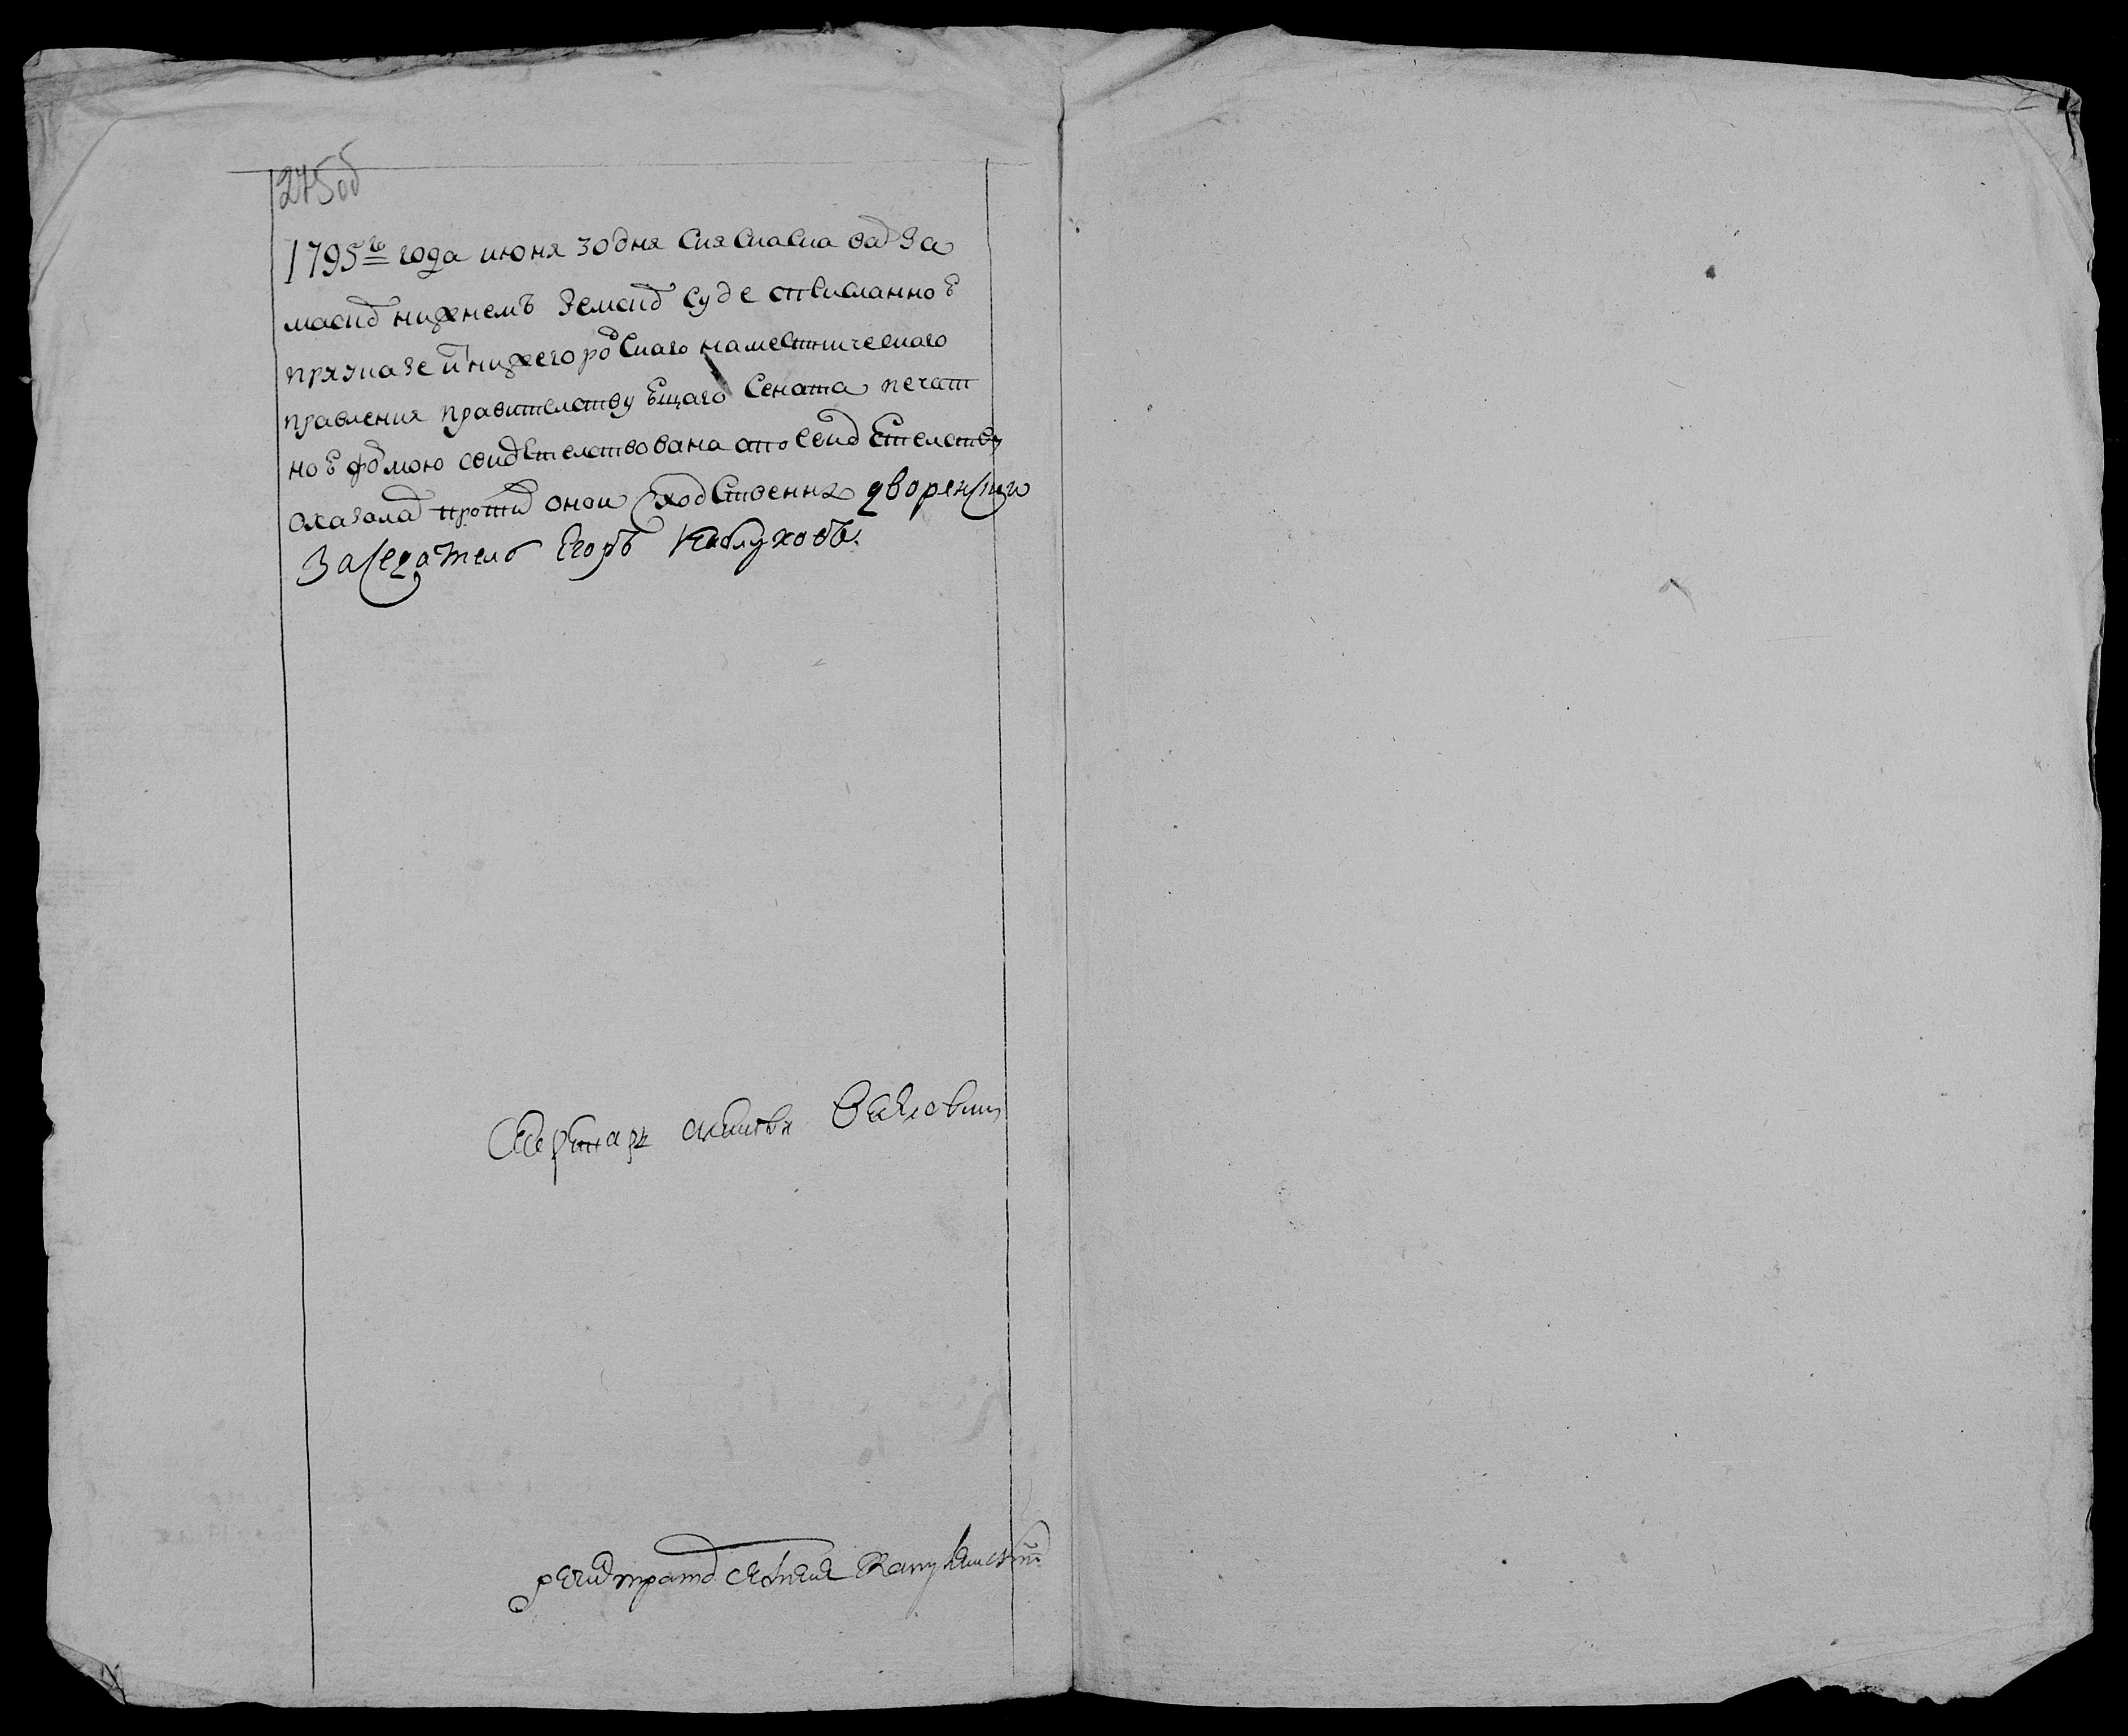 275об
1795го года июня 30 дня сия скаска варза
маском нижнемъ земском суде спвисланною
приуказе из нижегородскаго наместническаго
правления правителству ещаго сената печат
ною формою свидетелствована апосвидетелству
оказалас противъ онои сходственна дворенски
Заседатель Егоръ Каблуковъ.
Секретарь
регистраторъ